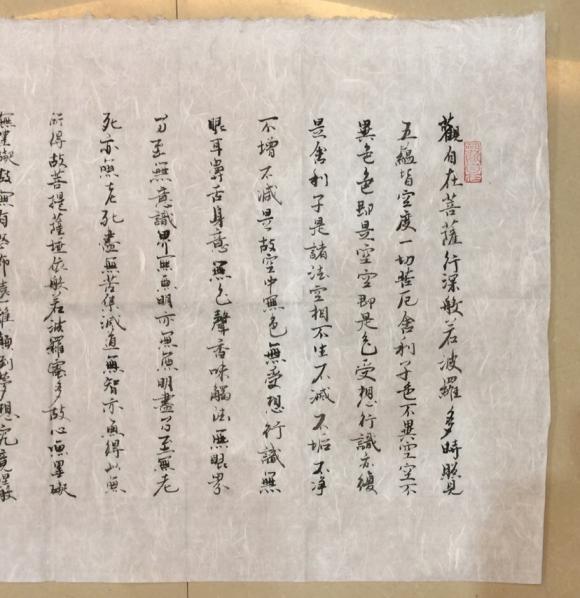 觀自在菩薩行深般若波羅多時照見
五蘊皆空度一切苦厄舍利子色不異空空不
異色色即是空空即是色受想行識亦復
是舍利子是諸法空相不生不滅不垢不淨
不增不減是故空中無色無受想行識無
眼耳鼻舌身意無色聲香味觸法無眼界
乃至無意識界無無明亦無無明盡乃至無老
死亦無老死盡無苦集滅道無智亦無得以無
所得故菩提薩埵依般若波羅蜜多故心無罣礙
無罣礙故無有恐怖遠離顛倒夢想究竟涅槃